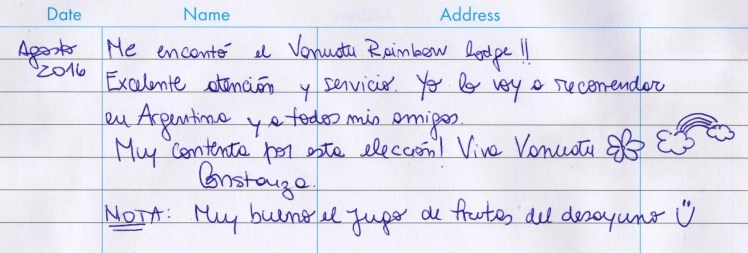 Date Name Address
Agosto Me encantó el Vanuatu Rainbow lodge!!
2016 Excelente atención y servicio. Yo lo voy a recomendar
en Argentina y a todos mis amigos.
Muy contenta por esta elección! Viva Vanuatu
Constanza.
NOTA: Muy bueno el jugo de frutas del desayuno